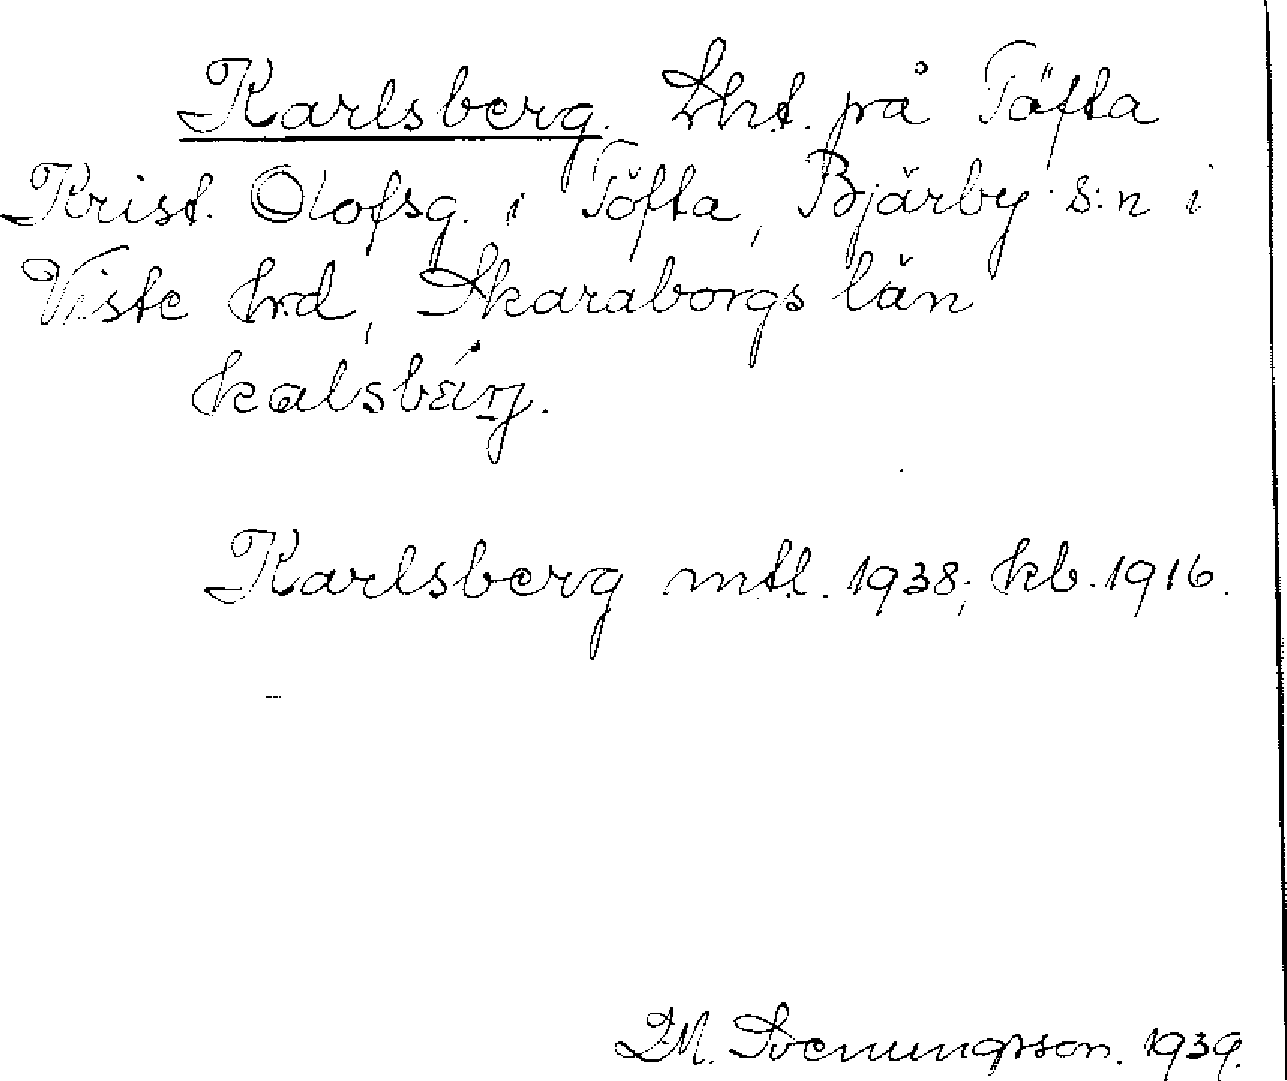 Karlsberg. Lht. på Töfta
Krist. Olofsg. i Töfta, Bjärby s:n i
Viste hrd, Skaraborgs län
kalsbärj.
Karlsberg mtl. 1938; kb. 1916.
M. Svenungsson. 1939.